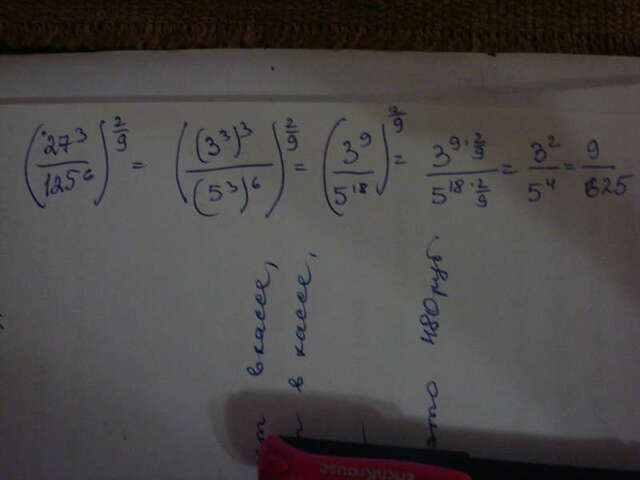 (27³/125⁶)^(2/9) = ((3³)³/(5³)⁶)^(2/9) = (3⁹/5¹⁸)^(2/9) = 3^(9·2/9)/5^(18·2/9) = 3²/5⁴ = 9/625
в кассе,
в кассе,
это 480 руб.
ErichKrause